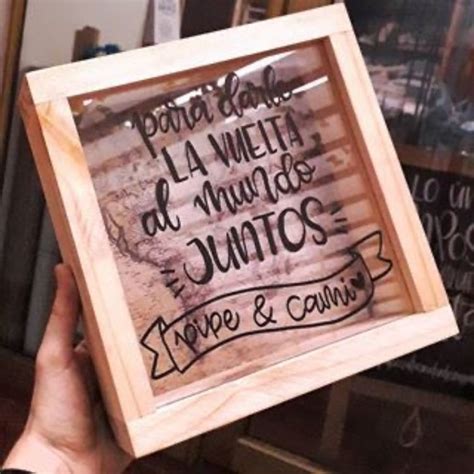 para darle
LA VUELTA
al mundo
JUNTOS
pipe & cami
LO ÚN